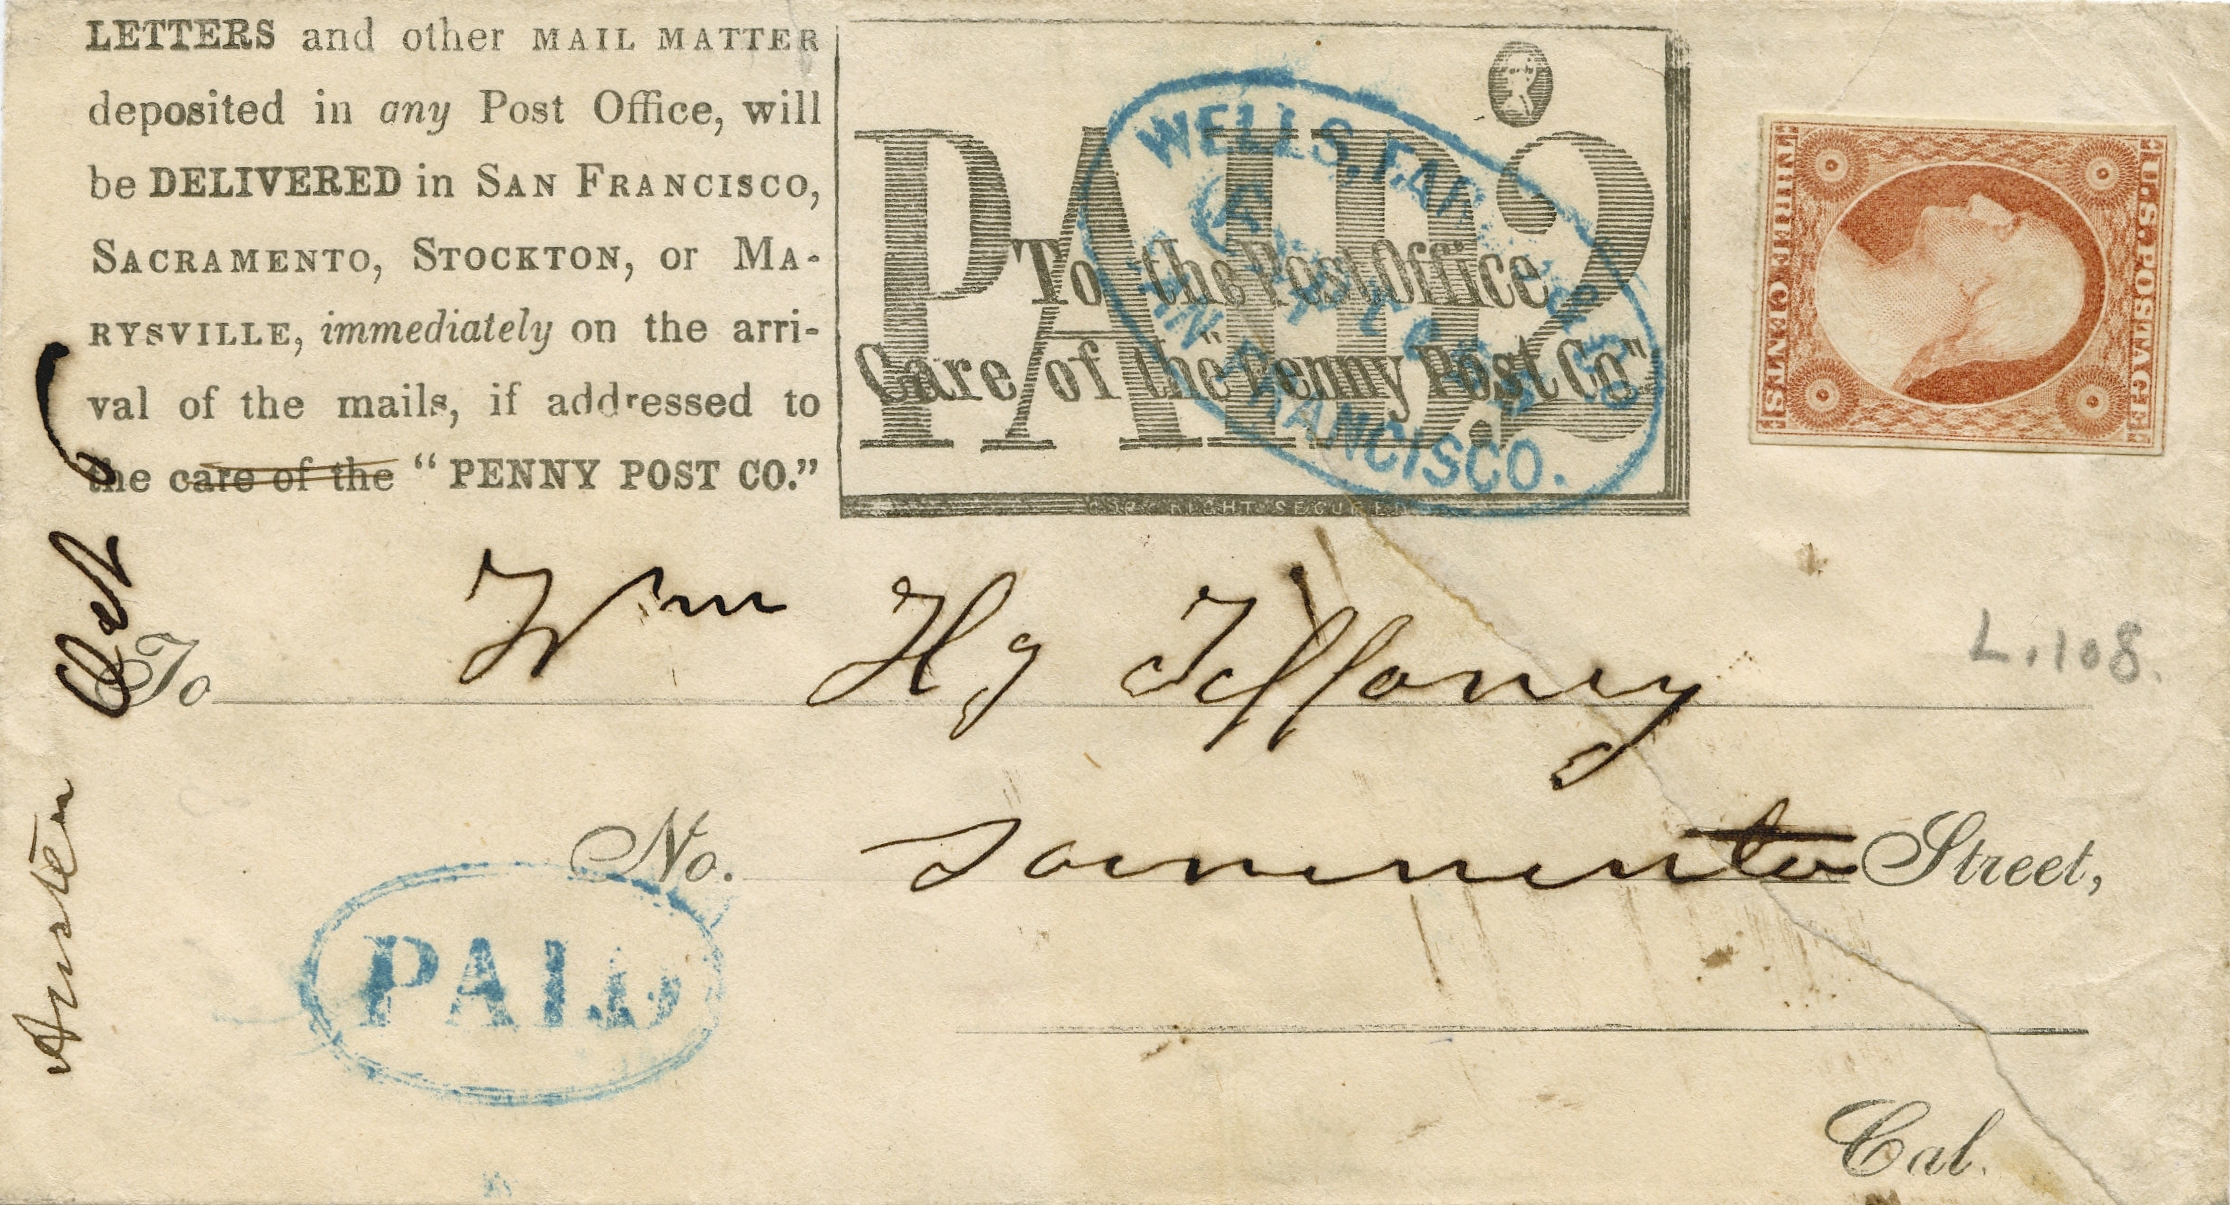 LETTERS and other MAIL MATTER
deposited in any Post Office, will
be DELIVERED in SAN FRANCISCO,
SACRAMENTO, STOCKTON, or MA-
RYSVILLE, immediately on the arri-
val of the mails, if addressed to
the care of the "PENNY POST CO."
PAID 2
To the Post Office
Care of the "Penny Post Co"
COPY RIGHT SECURED
WELLS, FARGO & CO
EXPRESS
SAN FRANCISCO.
U.S. POSTAGE
THREE CENTS
L.108.
To Wm Hy Tiffany
No. Sacramento Street,
PAID
Cal.
Austen